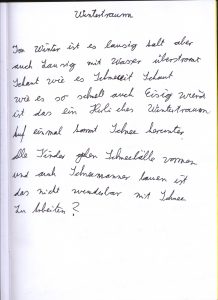 Wintertraum
Im Winter ist es lausig kalt aber
auch Lausig mit Wasser überströmt
Schaut wie es Schneeit Schaut
wie es so schnell auch Eisig wird
ist das ein Herliches Wintertraum
Auf einmal komt Schnee herunter
alle Kinder gehen Schneebälle
und auch Schneemänner bauen ist
das nicht wunderbar mit Schnee
Zu Arbeiten?